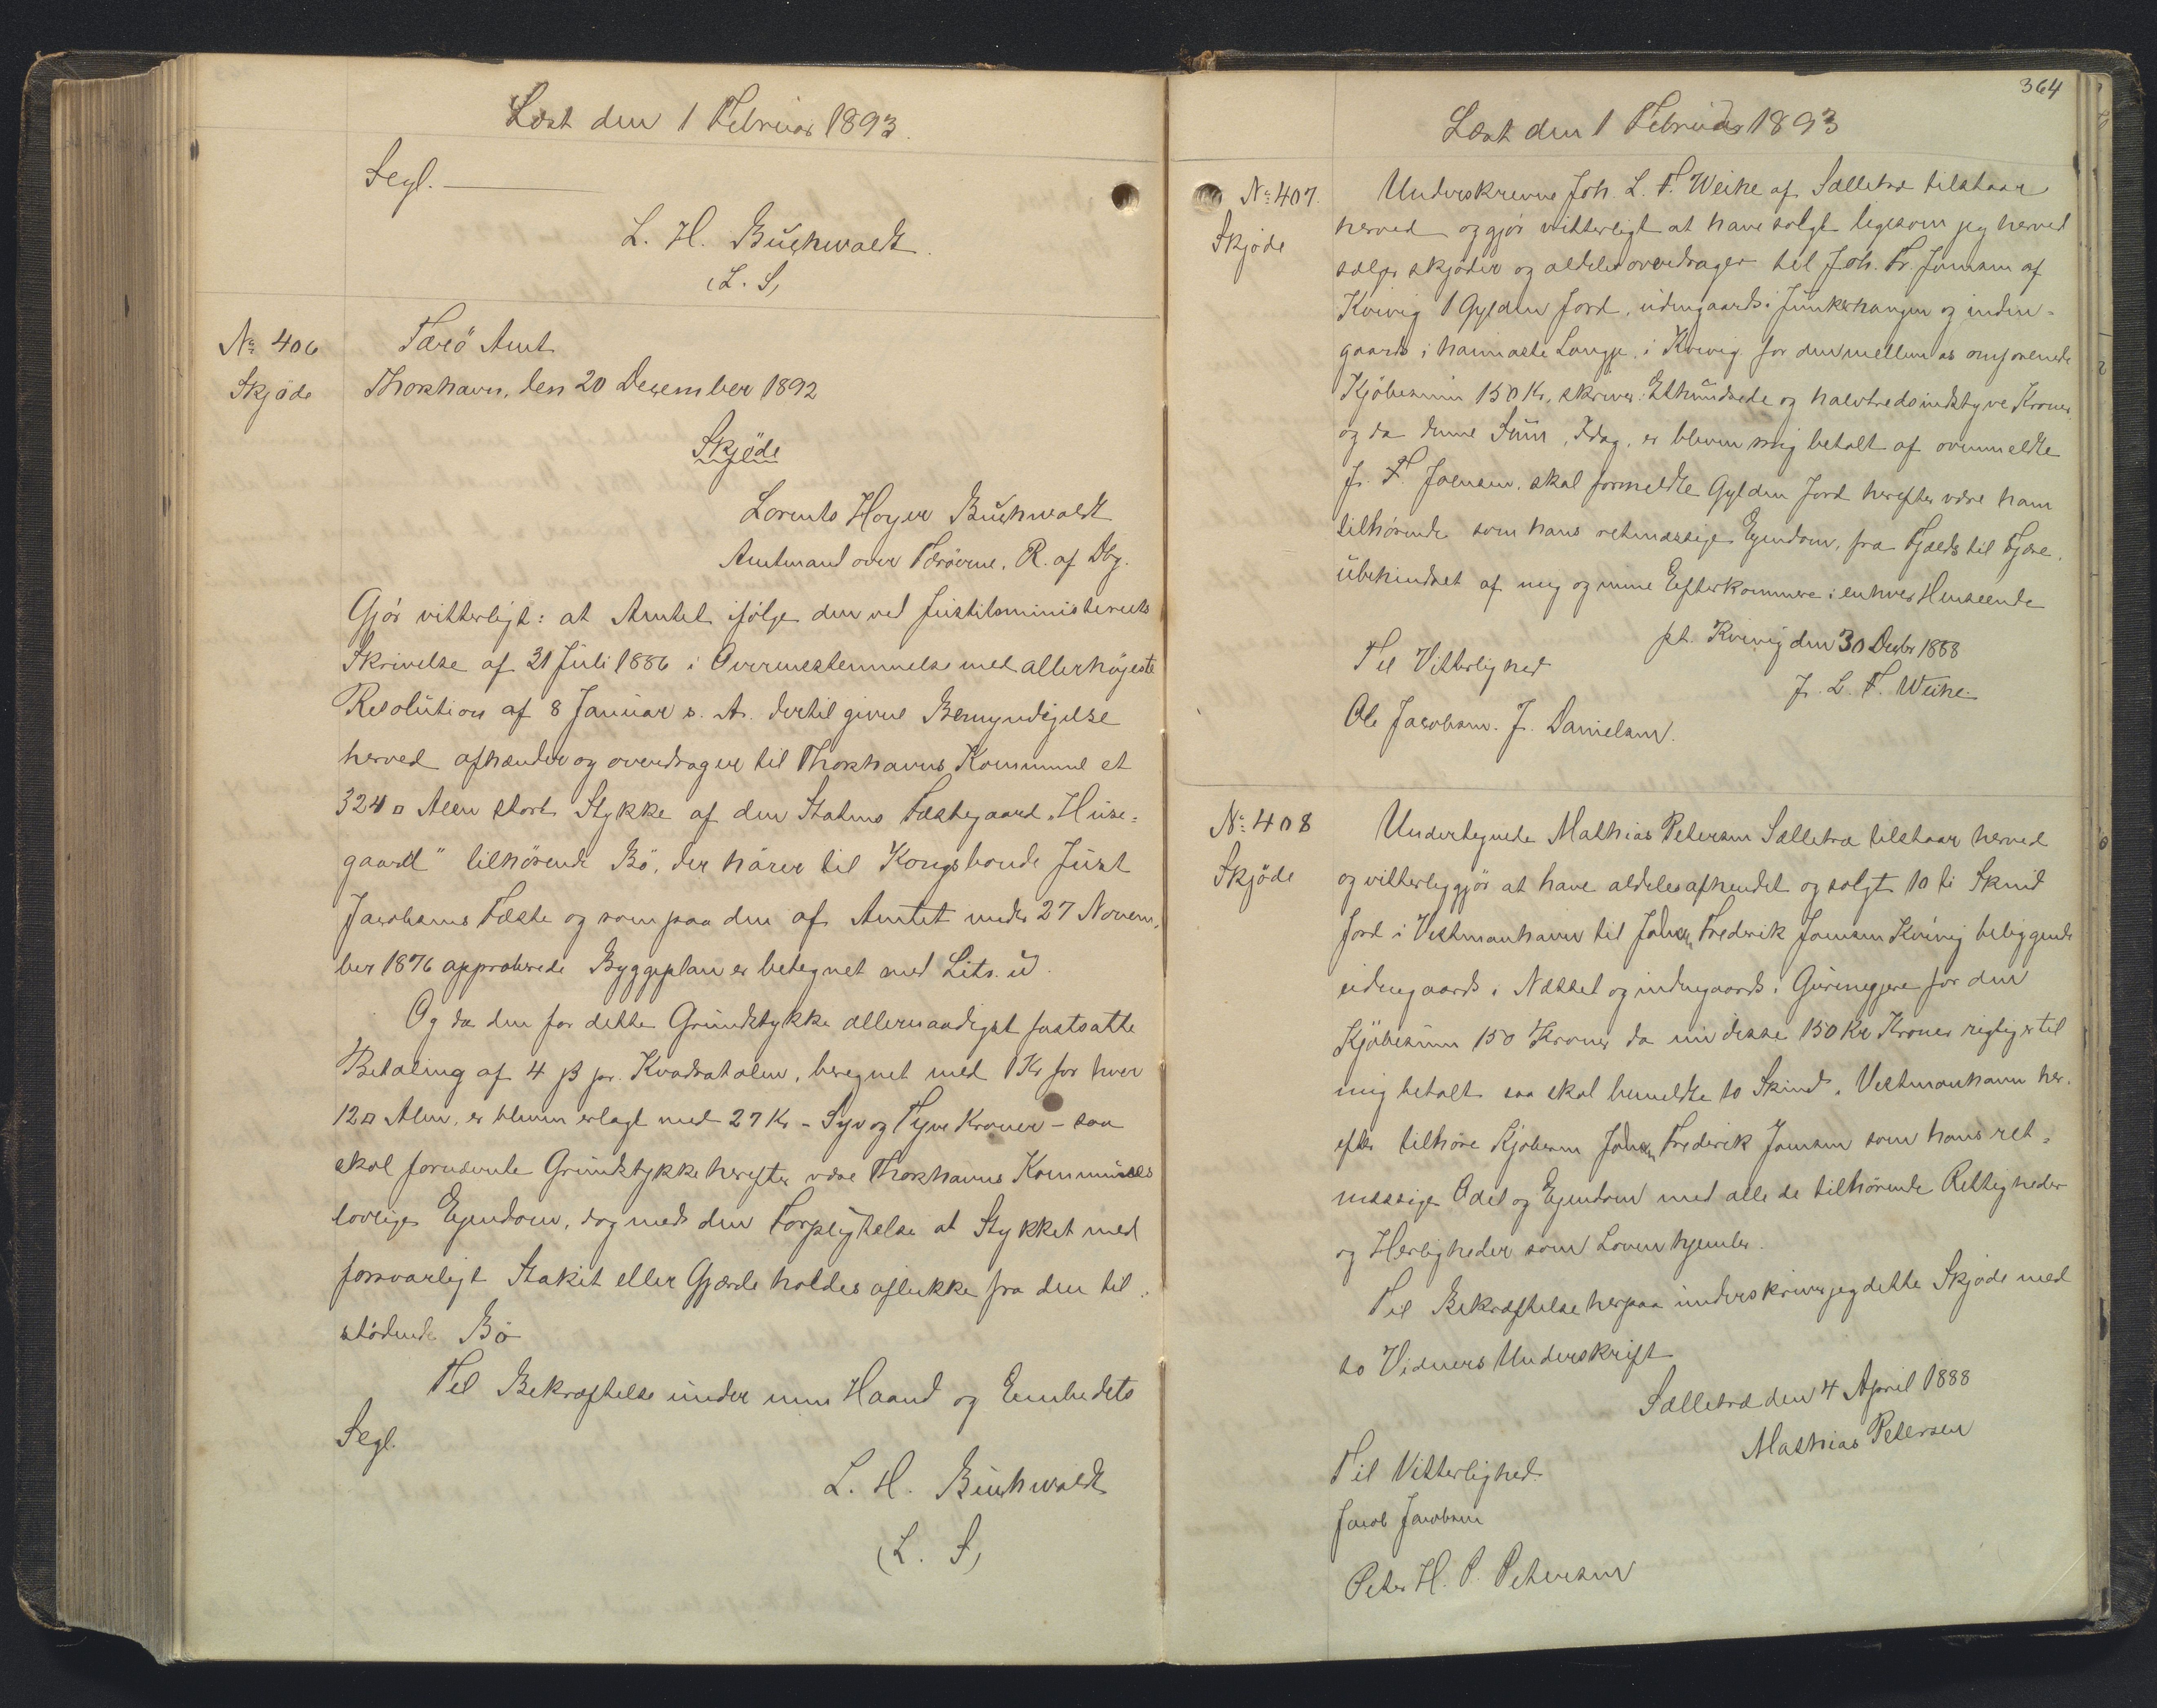 Læst den 1 Februar 1893.
Segl.
L. H. Buchwaldt.
(L. S)
No 406
Skjöde
Færö Amt
Thorshavn, den 20 Desember 1892
Skjöde
Lorents Hoyer Buchwaldt
Amtmand over Færöerne, R. af Dbg.
Gjör vitterligt: at Amtet ifölge den ved Justitsministeriets
Skrivelse af 31 Juli 1886 i Overensstemmelse med allerhöyeste
Resolution af 8 Januar s. A. dertil givne Bemyndigelse
herved afhænder og overdrager til Thorshavns Kommune et
324 □ Alen stort Stykke af den Statens Fæstegaard "Huse=
gaard" tilhörende Bö, der hörer til Kongsbonde Just
Jacobsens Fæste og som paa den af Amtet under 27 Novem=
ber 1876 approberede Byggeplan er betegnet med Litr. u.
Og da den for dette Grundstykke allernaadigst fastsatte
Betaling af 4 ß pr. Kvadratalen, beregnet med 1 Kr for hver
12 □ Alen, er bleven erlagt med 27 Kr - Syv og Tyve Kroner - saa
skal fornævnte Grundstykke herefter være Thorshavns Kommunes
lovlige Ejendom, dog med den Forpligtelse at Stykket med
forsvarligt Stakit eller Gjærde holdes aflukke fra den til=
stödende Bö
Til Bekræftelse under min Haand og Embedets
Segl.
L. H. Buchwaldt
(L. S)
364
Læst den 1 Februar 1893
No 407.
Skjöde
Underskrevne Joh. L. F. Weihe af Sælletræ tilstaar
herved og gjör vitterligt at have solgt ligesom jeg herved
sælger skjöder og aldeles overdrager til Joh. Fr. Joensen af
Kvivig 1 Gylden Jord, udengaards i Junkerhaugen og inden=
gaards i Langje, i Kvivig for den mellem os omforenede
Kjöbesum 150 Kr, skriver Ethundrede og halvtredsindstyve Kroner
og da denne Sum, Idag, er bleven mig betalt af ovenmeldte
J. F. Joensen, skal formeldte Gylden Jord herefter være ham
tilhörende som hans retmæssige Ejendom, fra Fjælds til Fjære,
ubehindret af mig og mine Efterkommere i enhver Henseende
pt. Kvivig den 30 Decbr 1888
Til Vitterlighed
J. L. F. Weihe.
Ole Jacobsen. J. Danielsen.
No 408
Skjöde
Undertegnede Mathias Petersen Sælletræ tilstaar herved
og vitterliggjör at have aldeles afhendet og solgt 10 ti Skind
Jord i Vestmanhavn til Johan Frederik Joensen Kvivig beliggende
udengaards i Næssel og indengaards i for den
Kjöbesum 150 Kroner da nu disse 150 Kr Kroner rigtig er til
mig betalt saa skal bemeldte 10 Skind i Vestmanhavn her=
efter tilhöre Kjöberen Johan Frederik Joensen som hans ret=
mæssige Odel og Ejendom med alle de tilhörende Rettigheder
og Herligheder som Loven hjemler.
Til Bekræftelse herpaa underskriver jeg dette Skjöde med
to Vidners Underskrift
Sælletræ den 4 April 1888
Mathias Petersen
Til Vitterlighed.
Jacob Jacobsen
Peter H. P. Petersen